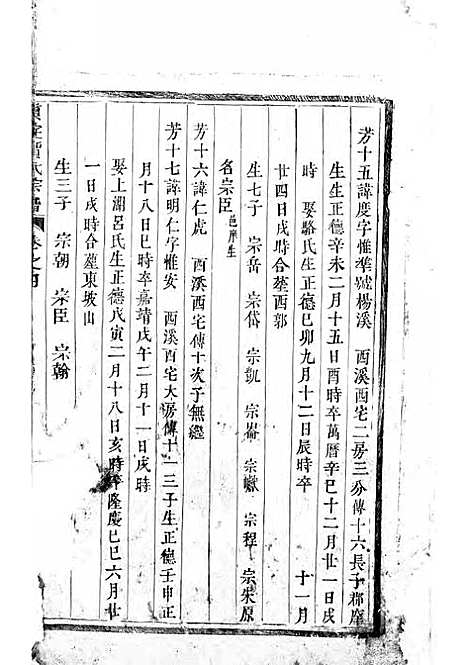 芳十五諱度字惟準號楊溪 酉溪西宅二房三分傳十六長子郡庠
生生正德辛未二月十五日酉時卒萬曆辛巳十二月廿一日戌
時 娶駱氏生正德己卯九月十二日辰時卒 十一月
廿四日戌時合塟西郭
生七子 宗岳 宗岱 宗凱 宗嵓 宗巘 宗程 宗朱原
名宗臣邑庠生
芳十六諱仁虎 酉溪西宅傳十次子無繼
芳十七諱明仁字惟安 酉溪西宅大房傳十一三子生正德壬申正
月十八日巳時卒嘉靖戊午二月十一日戌時
娶上湖呂氏生正德戊寅二月十八日亥時卒隆慶己巳六月廿
一日戌時合塟東坡山
生三子 宗朝 宗臣 宗翰
氏宗譜 卷之